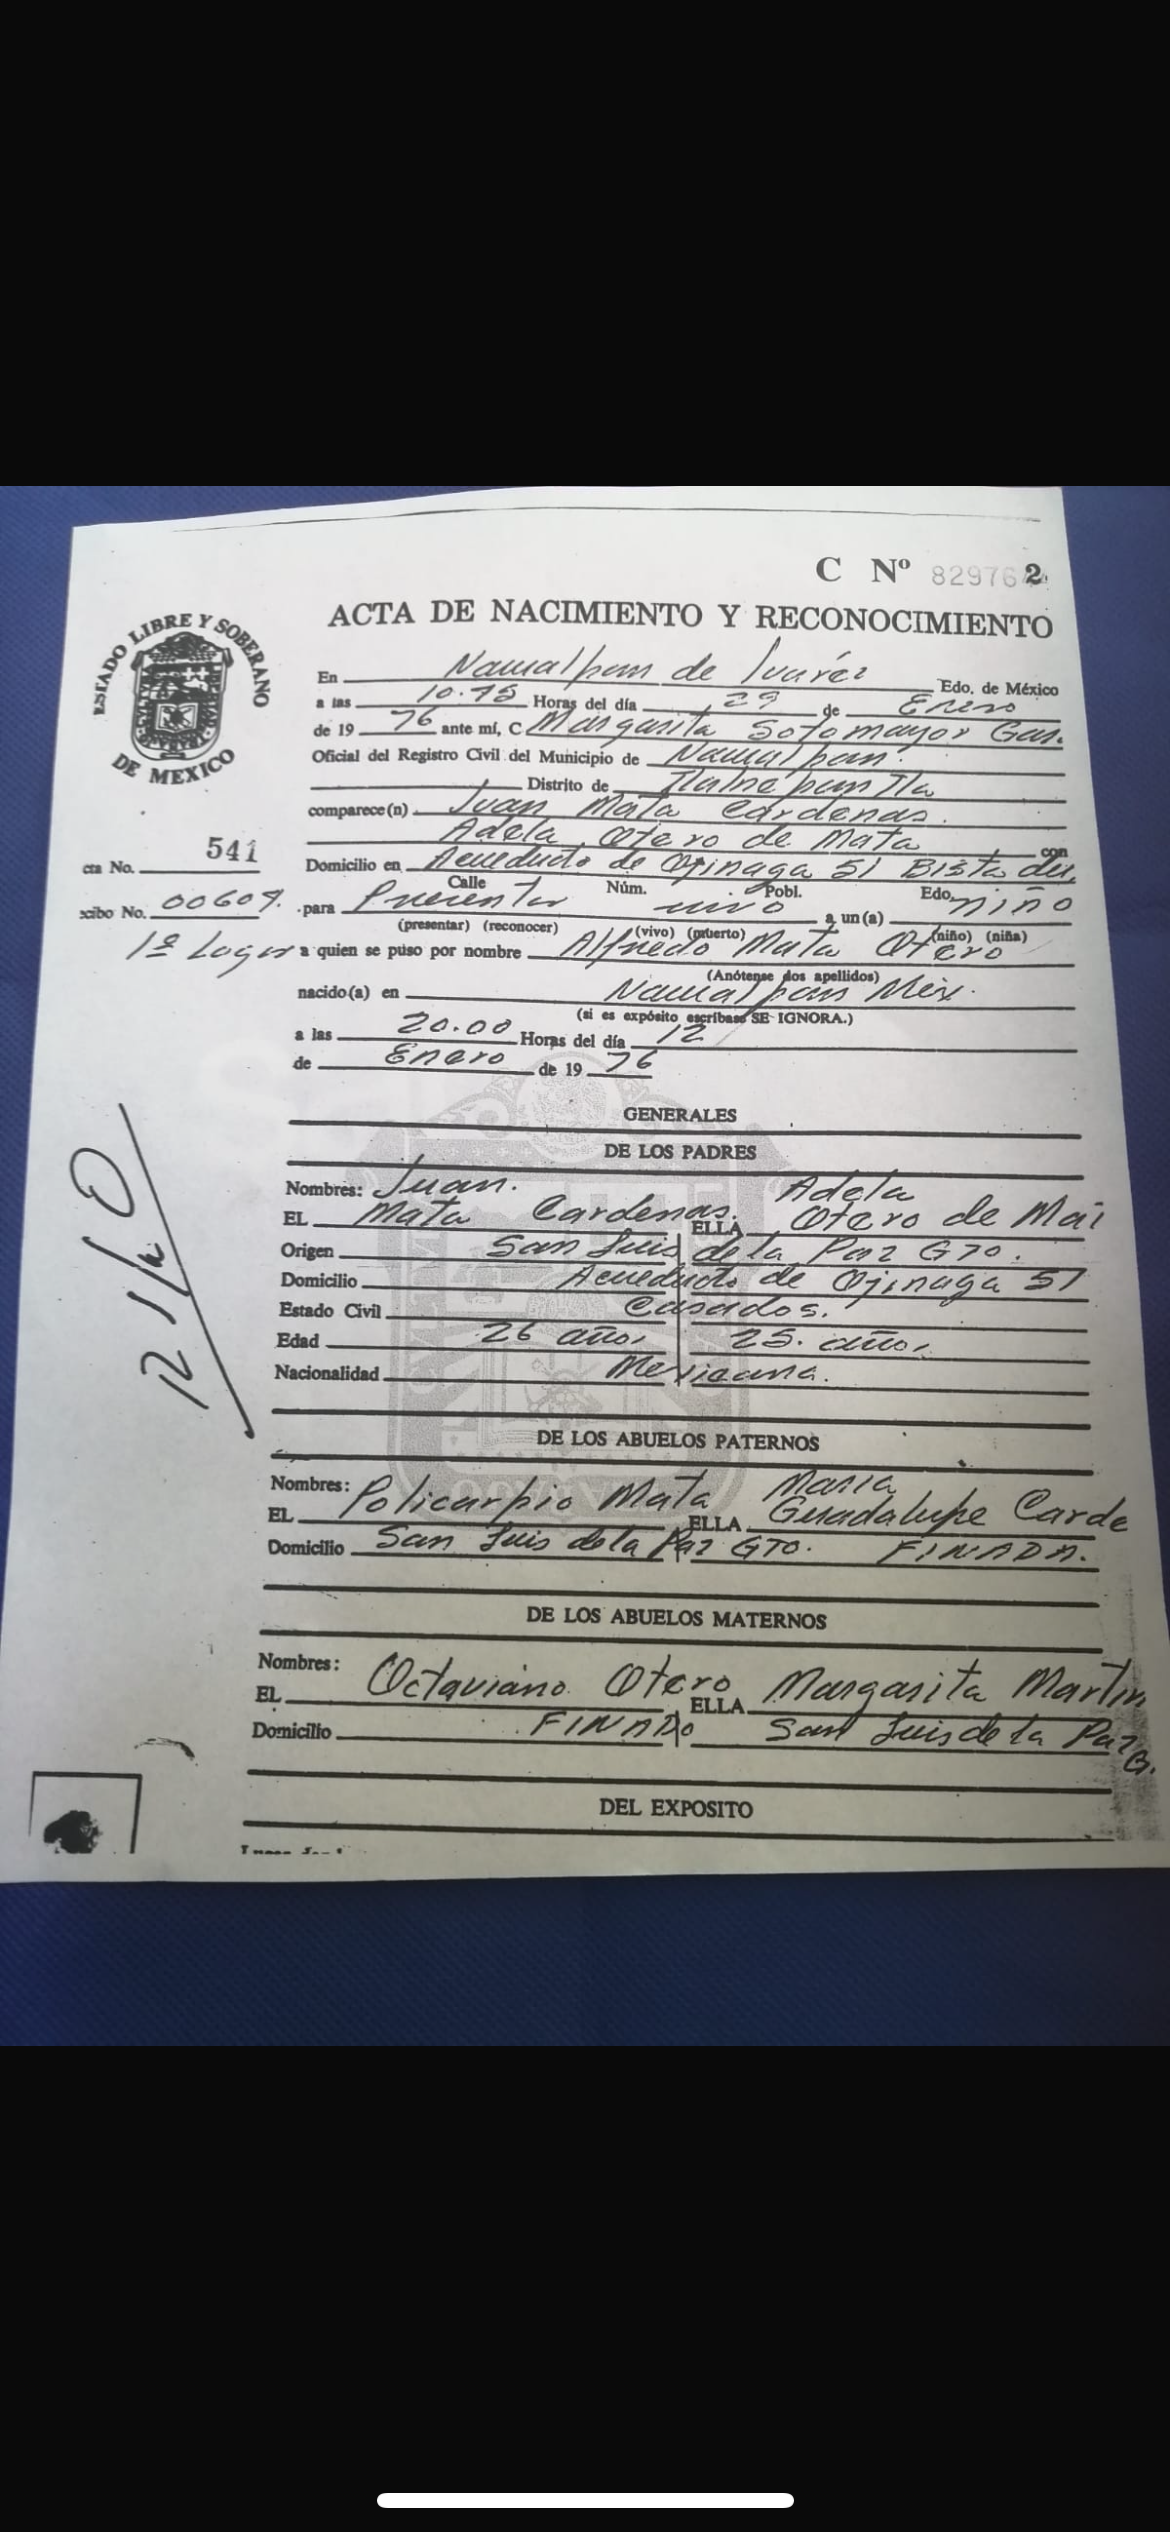 C Nº 829762
ACTA DE NACIMIENTO Y RECONOCIMIENTO
ESTADO LIBRE Y SOBERANO
DE MEXICO
En Naucalpan de Juárez Edo. de México
a las 10.45 Horas del día 29 de Enero
de 19 76 ante mí, C Margarita Sotomayor Gas.
Oficial del Registro Civil del Municipio de Naucalpan.
Distrito de Tlalnepantla
comparece(n) Juan Mata Cardenas.
Adela Otero de Mata con
cta No. 541
Domicilio en Acueducto de Ojinaga 51 Bista del
Calle Núm. Pobl. Edo.
ecibo No. 00609. para Presentar vivo a un(a) niño
(presentar) (reconocer) (vivo) (muerto) (niño) (niña)
1º Lugar a quien se puso por nombre Alfredo Mata Otero
(Anótense dos apellidos)
nacido(a) en Naucalpan Méx.
(si es expósito escríbase SE IGNORA.)
a las 20.00 Horas del día 12
de Enero de 19 76
GENERALES
DE LOS PADRES
Nombres: Juan. Adela
EL Mata Cardenas. ELLA Otero de Mat
Origen San Luis de la Paz GTO.
Domicilio Acueducto de Ojinaga 51
Estado Civil Casados.
Edad 26 años 25. años
Nacionalidad Mexicana.
DE LOS ABUELOS PATERNOS
Nombres: Maria
EL Policarpio Mata ELLA Guadalupe Carde
Domicilio San Luis de la Paz GTO. FINADA.
DE LOS ABUELOS MATERNOS
Nombres:
EL Octaviano Otero ELLA Margarita Martin
Domicilio FINADO San Luis de la Paz G.
DEL EXPOSITO